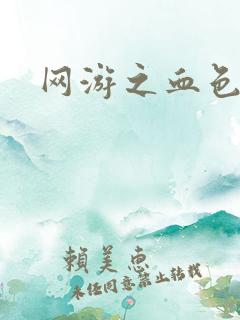 网游之血色
賴美惠
未经同意禁止转载